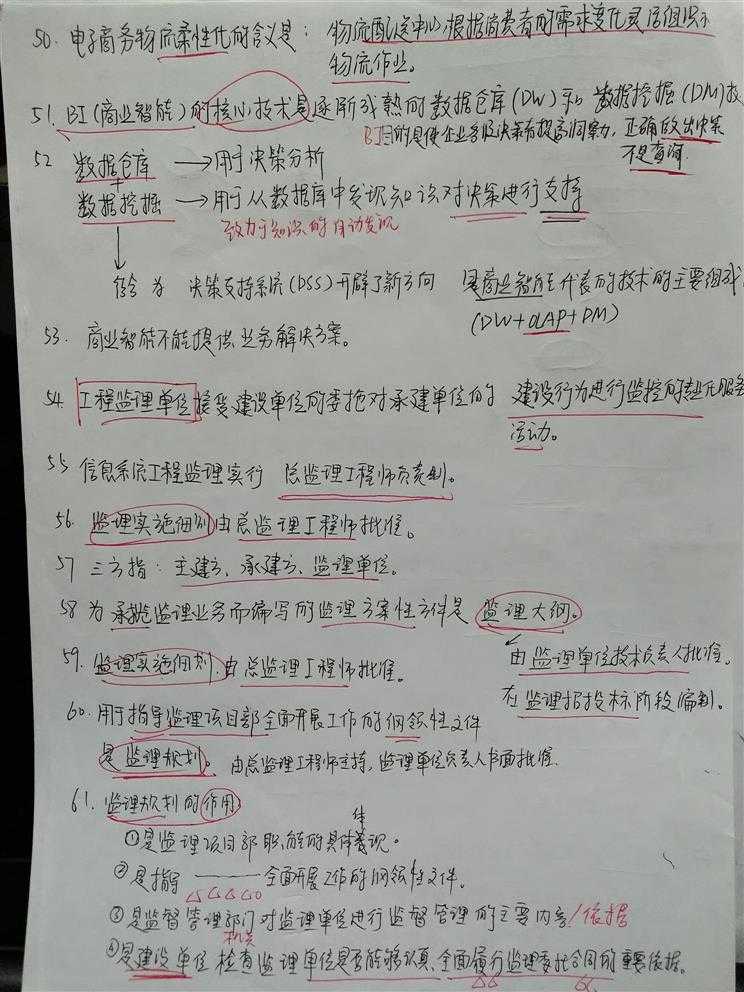 50. 电子商务物流柔性化的含义是: 物流配送中心根据消费者的需求变化灵活组织
物流作业。
51. BI(商业智能)的核心技术是逐渐成熟的数据仓库(DW)和 数据挖掘(DM)技
BI目的是使企业各级决策有提高洞察力, 正确做出决策
不是查询.
52 数据仓库 → 用于决策分析
+
数据挖掘 → 用于从数据库中发现知识对决策进行支持
致力于知识的自动发现
↓
结合为 决策支持系统(DSS)开辟了新方向 是商业智能主代表的技术的主要组成
(DW+OLAP+DM)
53. 商业智能不能提供业务解决方案。
54. 工程监理单位接受建设单位的委托对承建单位的 建设行为进行监控的专业化服务
活动。
55 信息系统工程监理实行 总监理工程师负责制。
56. 监理实施细则由总监理工程师批准。
57 三方指: 主建方、承建方、监理单位。
58 为承揽监理业务而编写的监理方案性文件是 监理大纲。
由监理单位技术负责人批准.
59. 监理实施细则.由总监理工程师批准。
在监理招投标阶段编制。
60. 用于指导监理项目部全面开展工作的纲领性文件
是监理规划。 由总监理工程师主持, 监理单位负责人书面批准.
61. 监理规划的作用
①是监理项目部职能的具体体现。
②是指导——全面开展工作的纲领性文件。
③是监督管理部门对监理单位进行监督管理的主要内容/依据
机关
④是建设单位 检查监理单位是否能够认真、全面履行监理委托合同的重要依据。